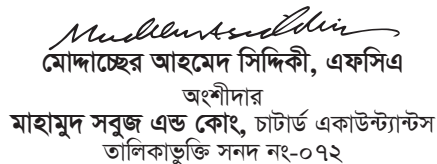 মোদ্দাচ্ছের আহমেদ সিদ্দিকী, এফসিএ
অংশীদার
মাহামুদ সবুজ এন্ড কোং, চাটার্ড একাউন্ট্যান্টস
তালিকাভুক্তি সনদ নং-০৭২